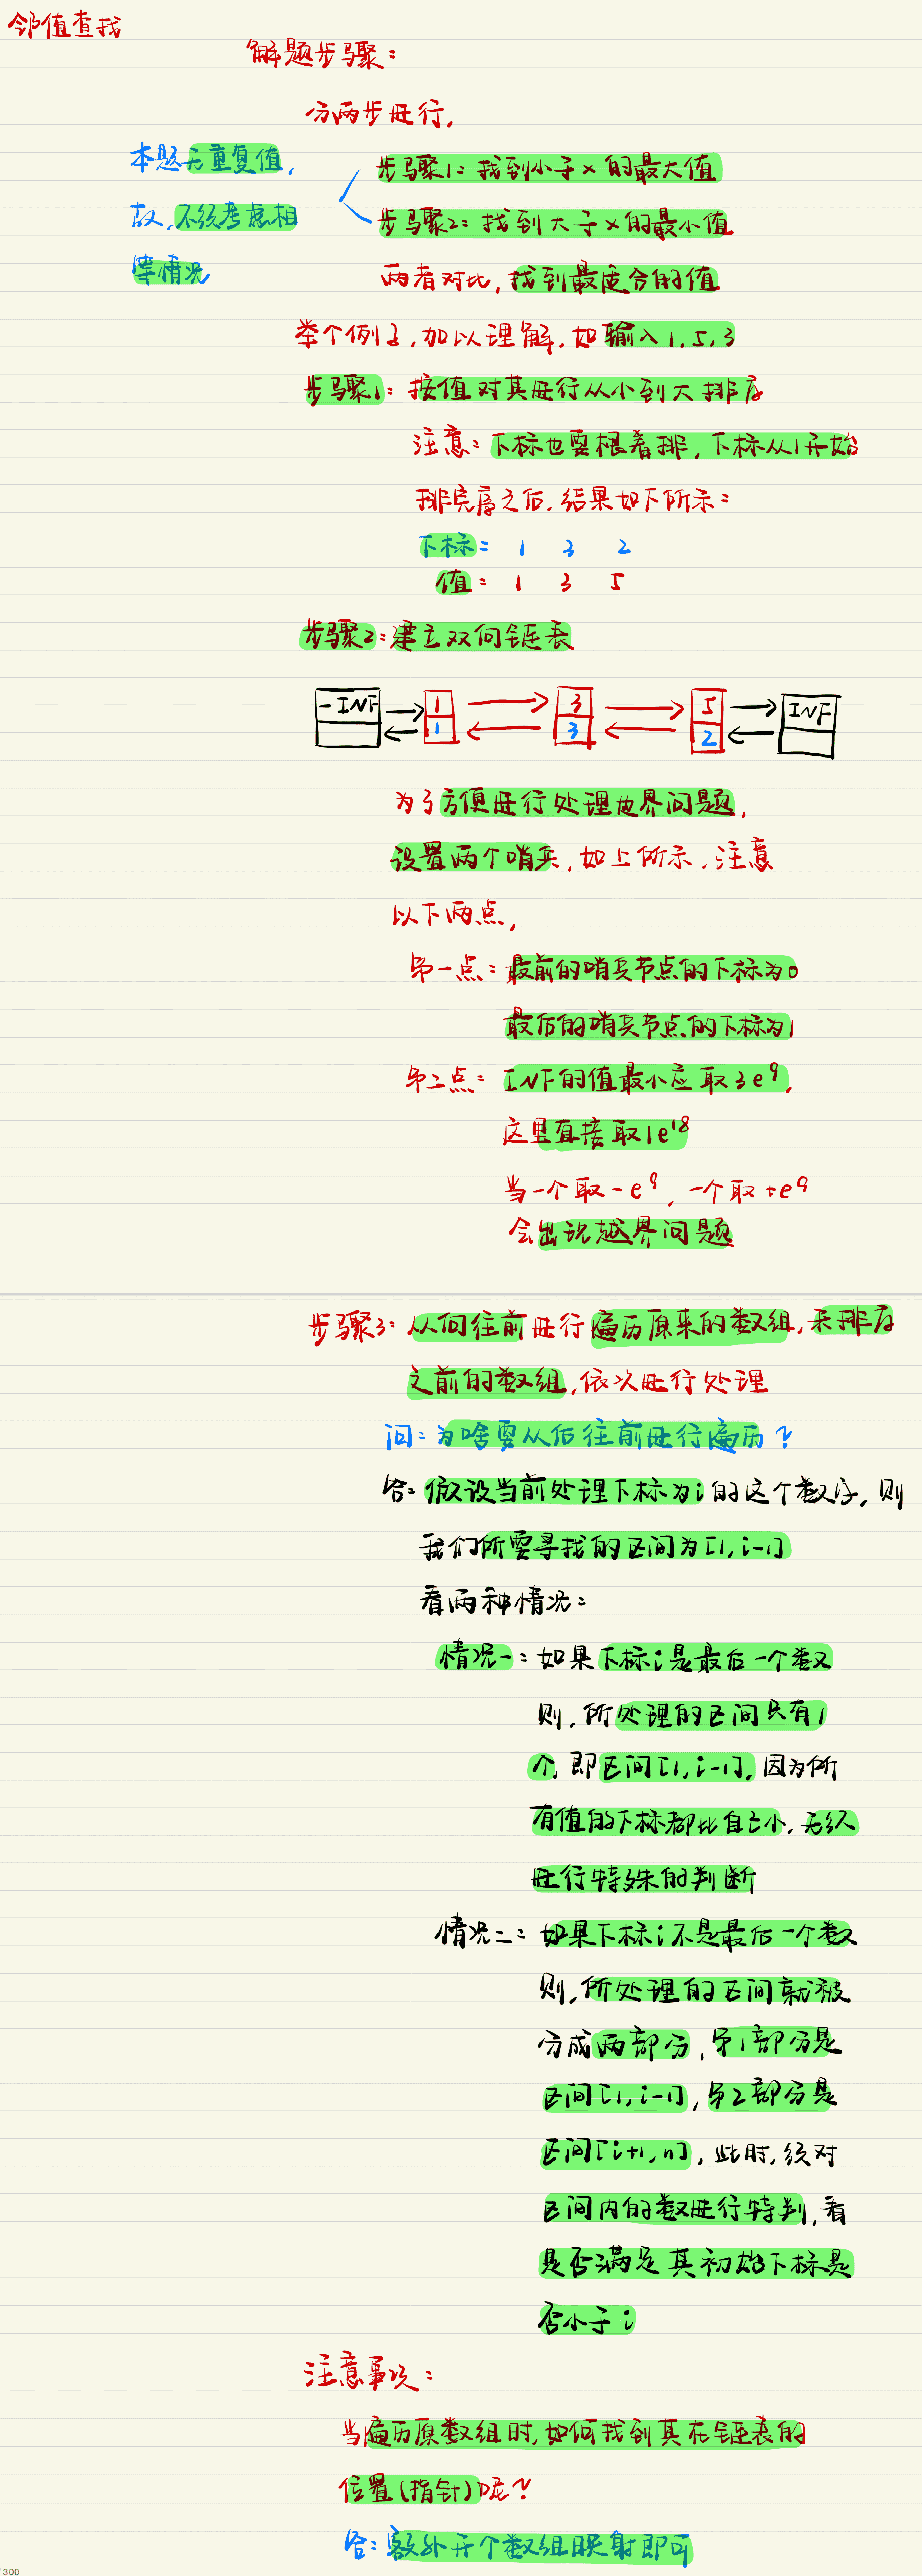 邻值查找
解题步骤：
分两步进行，
本题无重复值，
故，不须考虑相
等情况
步骤1：找到小于x的最大值
步骤2：找到大于x的最小值
两者对比，找到最适合的值
举个例子，加以理解，如输入1，5，3
步骤1：按值对其进行从小到大排序
注意：下标也要根着排，下标从1开始
排完序之后，结果如下所示：
下标： 1 3 2
值： 1 3 5
步骤2：建立双向链表
-INF 1 3 5 INF
1 3 2
为了方便进行处理边界问题，
设置两个哨兵，如上所示，注意
以下两点，
第一点：最前的哨兵节点的下标为0
最后的哨兵节点的下标为1
第二点：INF的值最小应取3e⁹，
这里直接取1e¹⁸
当一个取-e⁹，一个取+e⁹
会出现越界问题
步骤3：从后往前进行遍历原来的数组，未排序
之前的数组，依次进行处理
问：为啥要从后往前进行遍历？
答：假设当前处理下标为i的这个数字，则
我们所要寻找的区间为[1,i-1]
看两种情况：
情况一：如果下标i是最后一个数
则，所处理的区间只有1
个，即区间[1,i-1]，因为所
有值的下标都比自己小，无须
进行特殊的判断
情况二：如果下标i不是最后一个数
则，所处理的区间就被
分成两部分，第1部分是
区间[1,i-1]，第2部分是
区间[i+1,n]，此时，须对
区间内的数进行特判，看
是否满足其初始下标是
否小于i
注意事项：
当遍历原数组时，如何找到其在链表的
位置(指针)呢？
答：额外开个数组映射即可
/300